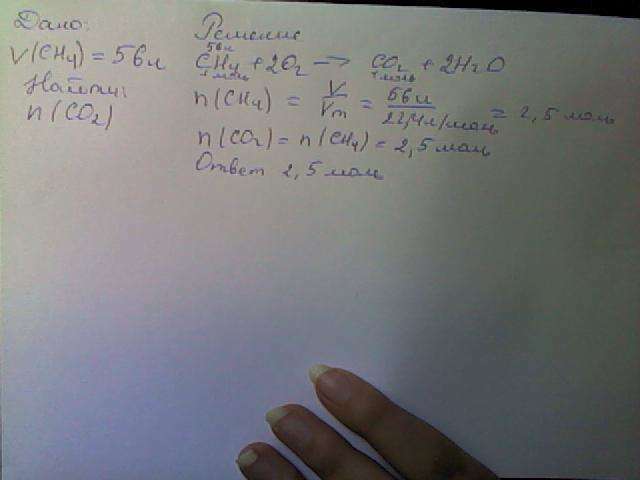 Дано:
V(CH4) = 56л
Найти:
n(CO2)
Решение
56л
CH4 + 2O2 → CO2 + 2H2O
1моль 1моль
n(CH4) = V/Vm = 56л/22,4л/моль = 2,5 моль
n(CO2) = n(CH4) = 2,5 моль
Ответ 2,5 моль